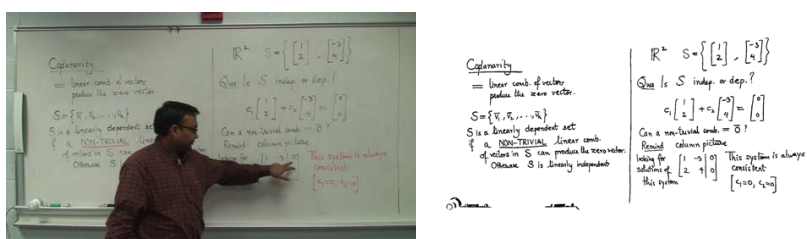 Coplanarity
= linear comb. of vectors
produce the zero vector.
S = {v̄₁, v̄₂, ..., v̄ₖ}
S is a linearly dependent set
if a NON-TRIVIAL linear
of vectors in S can vector.
Otherwise S is
ℝ² S = { [1 2], [-3 4] }
Ques Is S indep. or dep.?
c₁ [1 2] + c₂ [-3 4] = [0 0]
Can a non-trivial comb. = 0̄ ?
Remind: column picture
looking for [1 -3 | 0] This system is always
consistent
[c₁=0, c₂=0]
Coplanarity
= linear comb. of vectors
produce the zero vector.
S = {v̄₁, v̄₂, ..., v̄ₖ}
S is a linearly dependent set
if a NON-TRIVIAL linear comb.
of vectors in S can produce the zero vector.
Otherwise S is linearly independent
ℝ² S = { [1 2], [-3 4] }
Ques Is S indep. or dep.?
c₁ [1 2] + c₂ [-3 4] = [0 0]
Can a non-trivial comb. = 0̄ ?
Remind column picture
looking for [1 -3 | 0] This system is always
solutions of [2 4 | 0] consistent
this system [c₁=0, c₂=0]